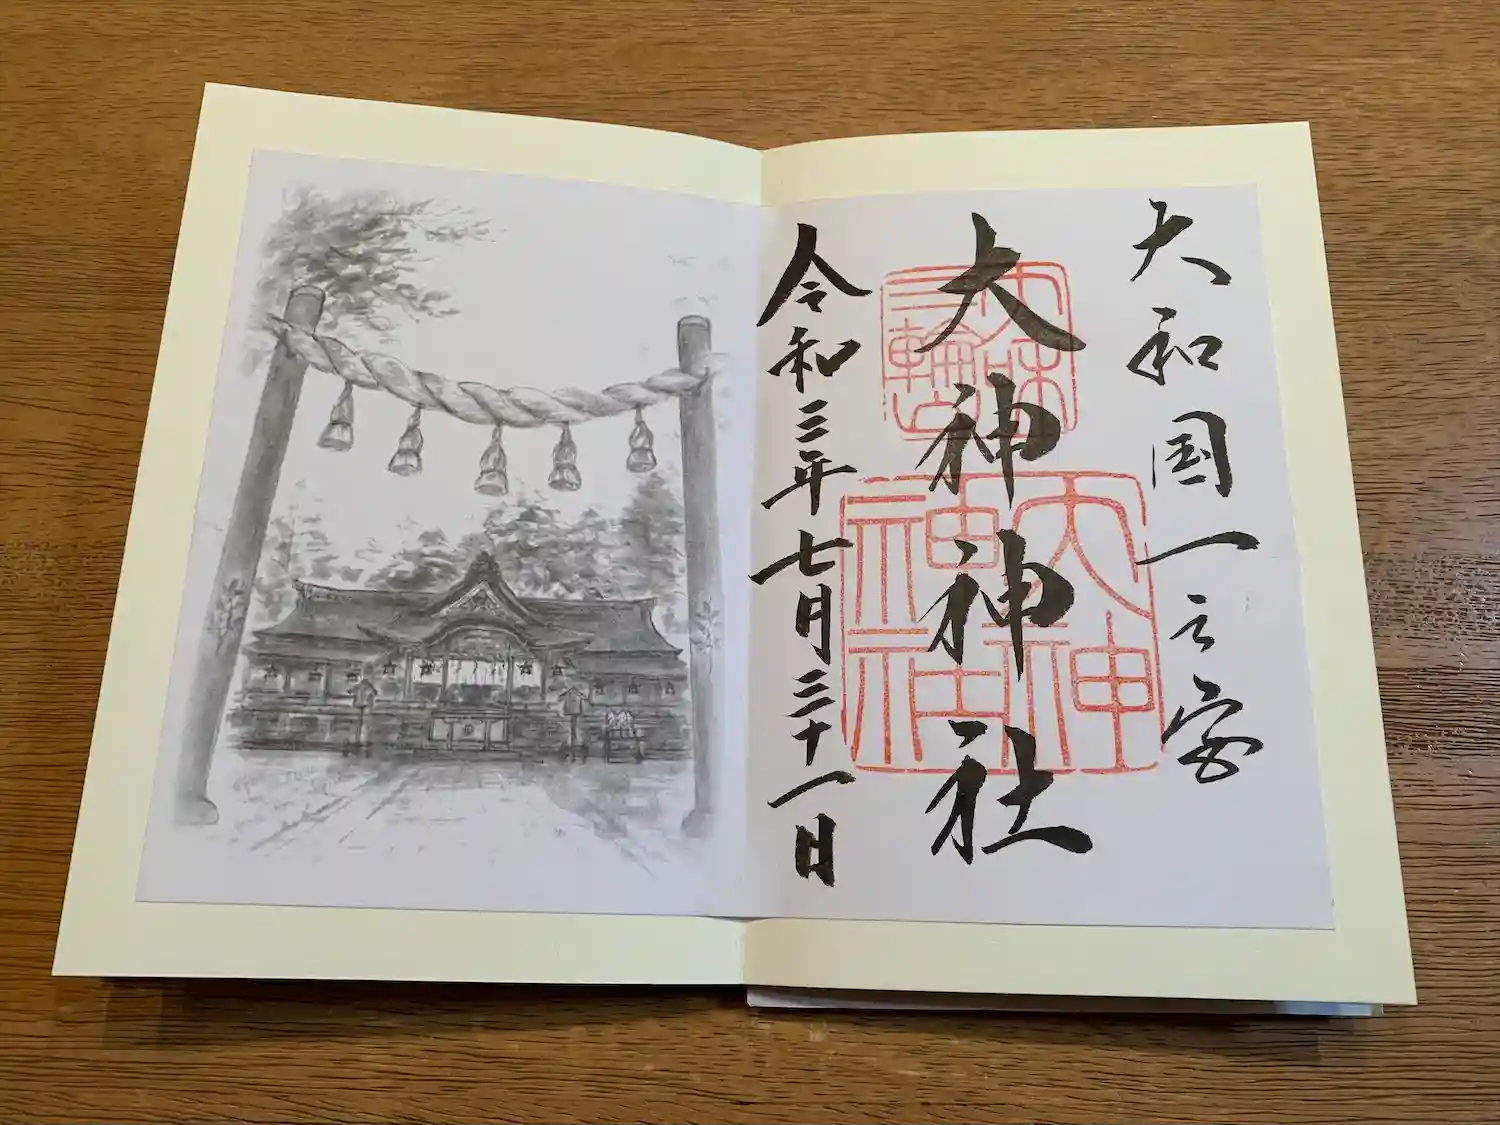 大和国一之宮
大神神社
令和三年七月三十一日
大神
神社